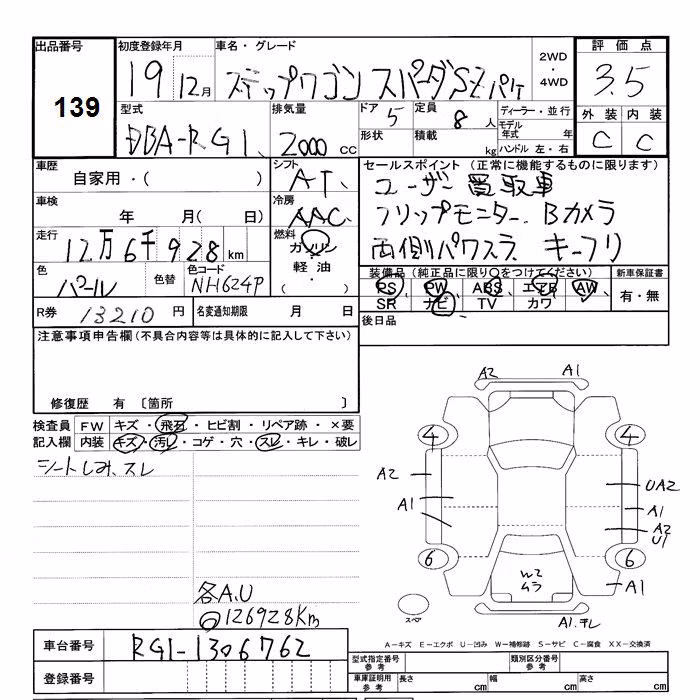 出品番号 初度登録年月 車名・グレード 評価点
139
19 12月 ステップワゴン スパーダSZパケ 2WD・4WD 3.5
型式 排気量 ドア 定員 ディーラー・並行 外装 内装
DBA-RG1 2000 cc 5 8人 モデル年式 年 C C
形状 積載 kg ハンドル 左・右
車歴 シフト セールスポイント (正常に機能するものに限ります)
自家用・( ) AT ユーザー買取車
車検 冷房 フリップモニター. Bカメラ
年 月( 日) AAC
走行 燃料 両側パワスラ キーフリ
12万6千928km ガソリン
色 色替 色コード 軽油 装備品(純正品に限り○をつけてください) 新車保証書
パール NH624P ・( ) PS PW ABS エアB AW 有・無
SR ナビ TV カワ
R券 13210円 名変通知期限 月 日 後日品
注意事項申告欄(不具合内容等は具体的に記入して下さい)
修復歴 有 〔箇所 〕
検査員 FW キズ・飛石・ヒビ割・リペア跡・×要
記入欄 内装 キズ・汚レ・コゲ・穴・スレ・キレ・破レ
シートしみ、スレ
A2 A1
4 4
A2 UA2
A1 A1
A2
U1
6 6
W2 A1
ムラ
各A.U
126928Km
スペア A1.チレ
A-キズ E-エクボ U-凹み W-補修跡 S-サビ C-腐食 XX-交換済
車台番号 RG1-1306762 型式指定番号 参考 類別区分番号 参考
登録番号 車庫証明用 参考 長さ cm 幅 cm 高さ cm